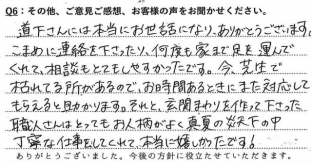 Q6：その他、ご意見ご感想、お客様の声をお聞かせください。
道下さんには本当にお世話になり、ありがとうございます。
こまめに連絡を下さったり、何度も家まで足を運んで
くれて、相談もとてもしやすかったです。今、芝生で
枯れてる所があるので、お時間あるときにまた対応して
もらえると助かります。それと、玄関まわりを作って下さった
職人さんはとってもお人柄がよく真夏の炎天下の中
丁寧な仕事をしてくれて、本当に嬉しかったです！
ありがとうございました。今後の方針に役立たせていただきます。